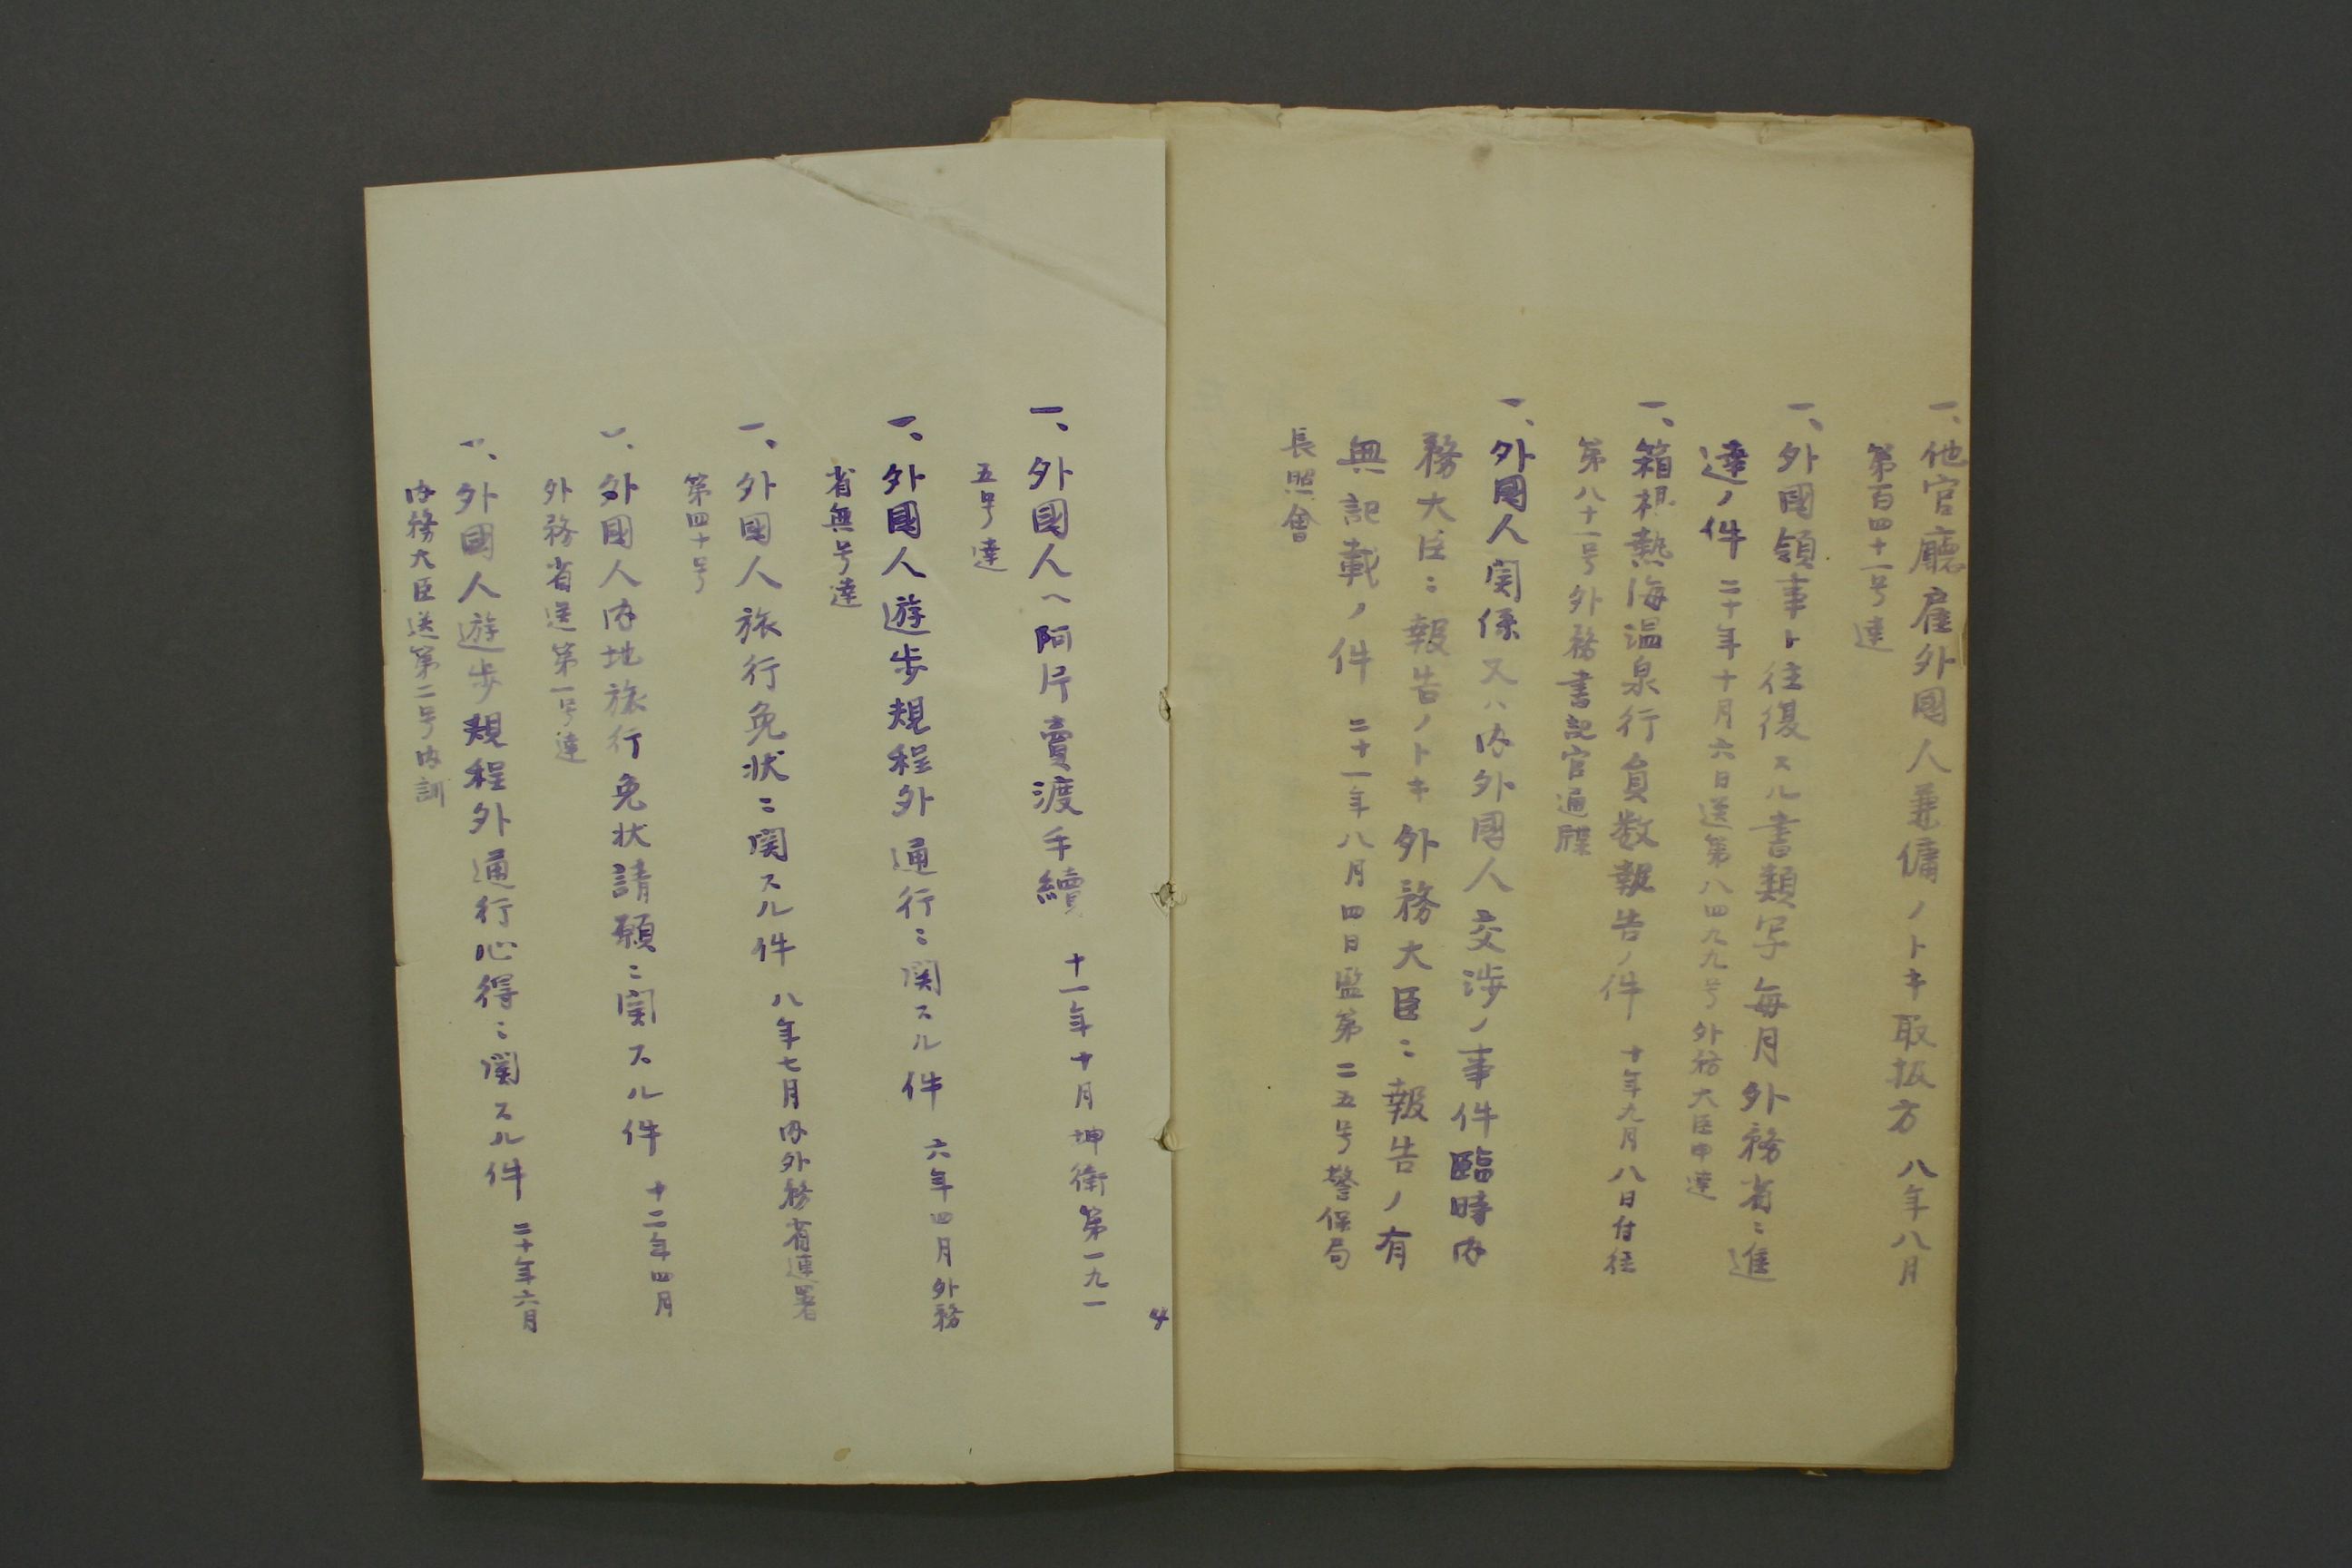 一、他官廳雇外國人兼傭ノトキ取扱方 八年八月
第百四十一号達
一、外國領事ト往復スル書類写毎月外務省ニ進
達ノ件 二十年十月六日送第八四九九号外務大臣申達
一、箱根熱海温泉行員数報告ノ件 十年九月八日付往
第八十一号外務書記官通牒
一、外國人関係又ハ内外國人交渉ノ事件臨時内
務大臣ニ報告ノトキ外務大臣ニ報告ノ有
無記載ノ件 二十一年八月四日監第二五号警保局
長照會
一、外國人ヘ阿片賣渡手續 十一年十月坤衛第一九一
五号達
一、外國人遊歩規程外通行ニ関スル件 六年四月外務
省無号達
一、外國人旅行免状ニ関スル件 八年七月内外務省連署
第四十号
一、外國人内地旅行免状請願ニ関スル件 十二年四月
外務省送第一号達
一、外國人遊歩規程外通行心得ニ関スル件 二十年六月
内務大臣送第二号内訓
4